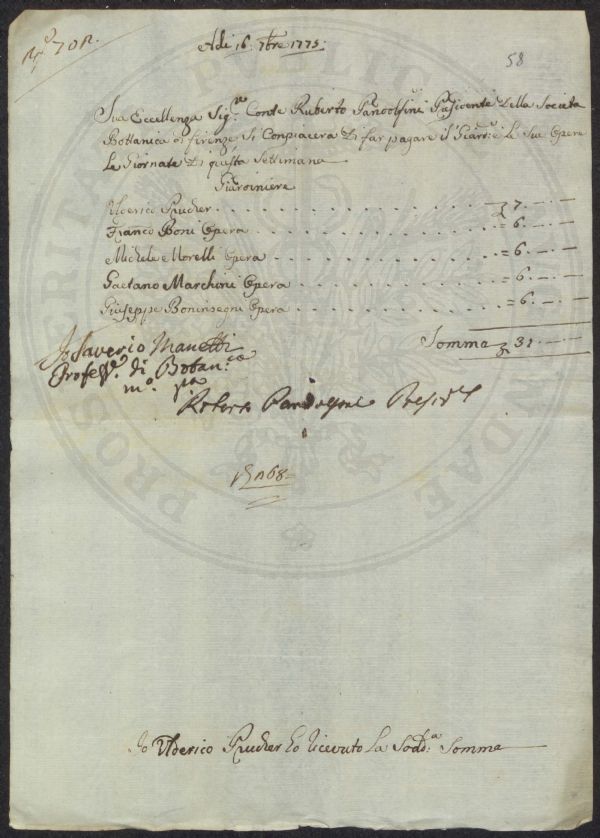 Adi 16. 7bre 1775.
58
Sua Eccellenza Sig.re Conte Ruberto Pandolfini Presidente Della Societa
Bottanica di firenze Si Conpiacera Di far pagare il Giar:re Le Sue Opere
Le Giornate Di questa Settimana
Giardiniere
Ulderico Prucher 7.
Franco Boni Opera = 6.
Michele Morelli Opera = 6.
Gaetano Marchini Opera = 6.
Giuseppe Boninsegni Opera = 6.
Somma 31
Io Saverio Manetti
Profess.e di Botan.ca
m.o pa
Roberto Pandolfini Presid.e
168
Io Ulderico Prucher ho riceuto La Sod.a Somma
PROSPERITATI PUBLICAE AUGENDAE